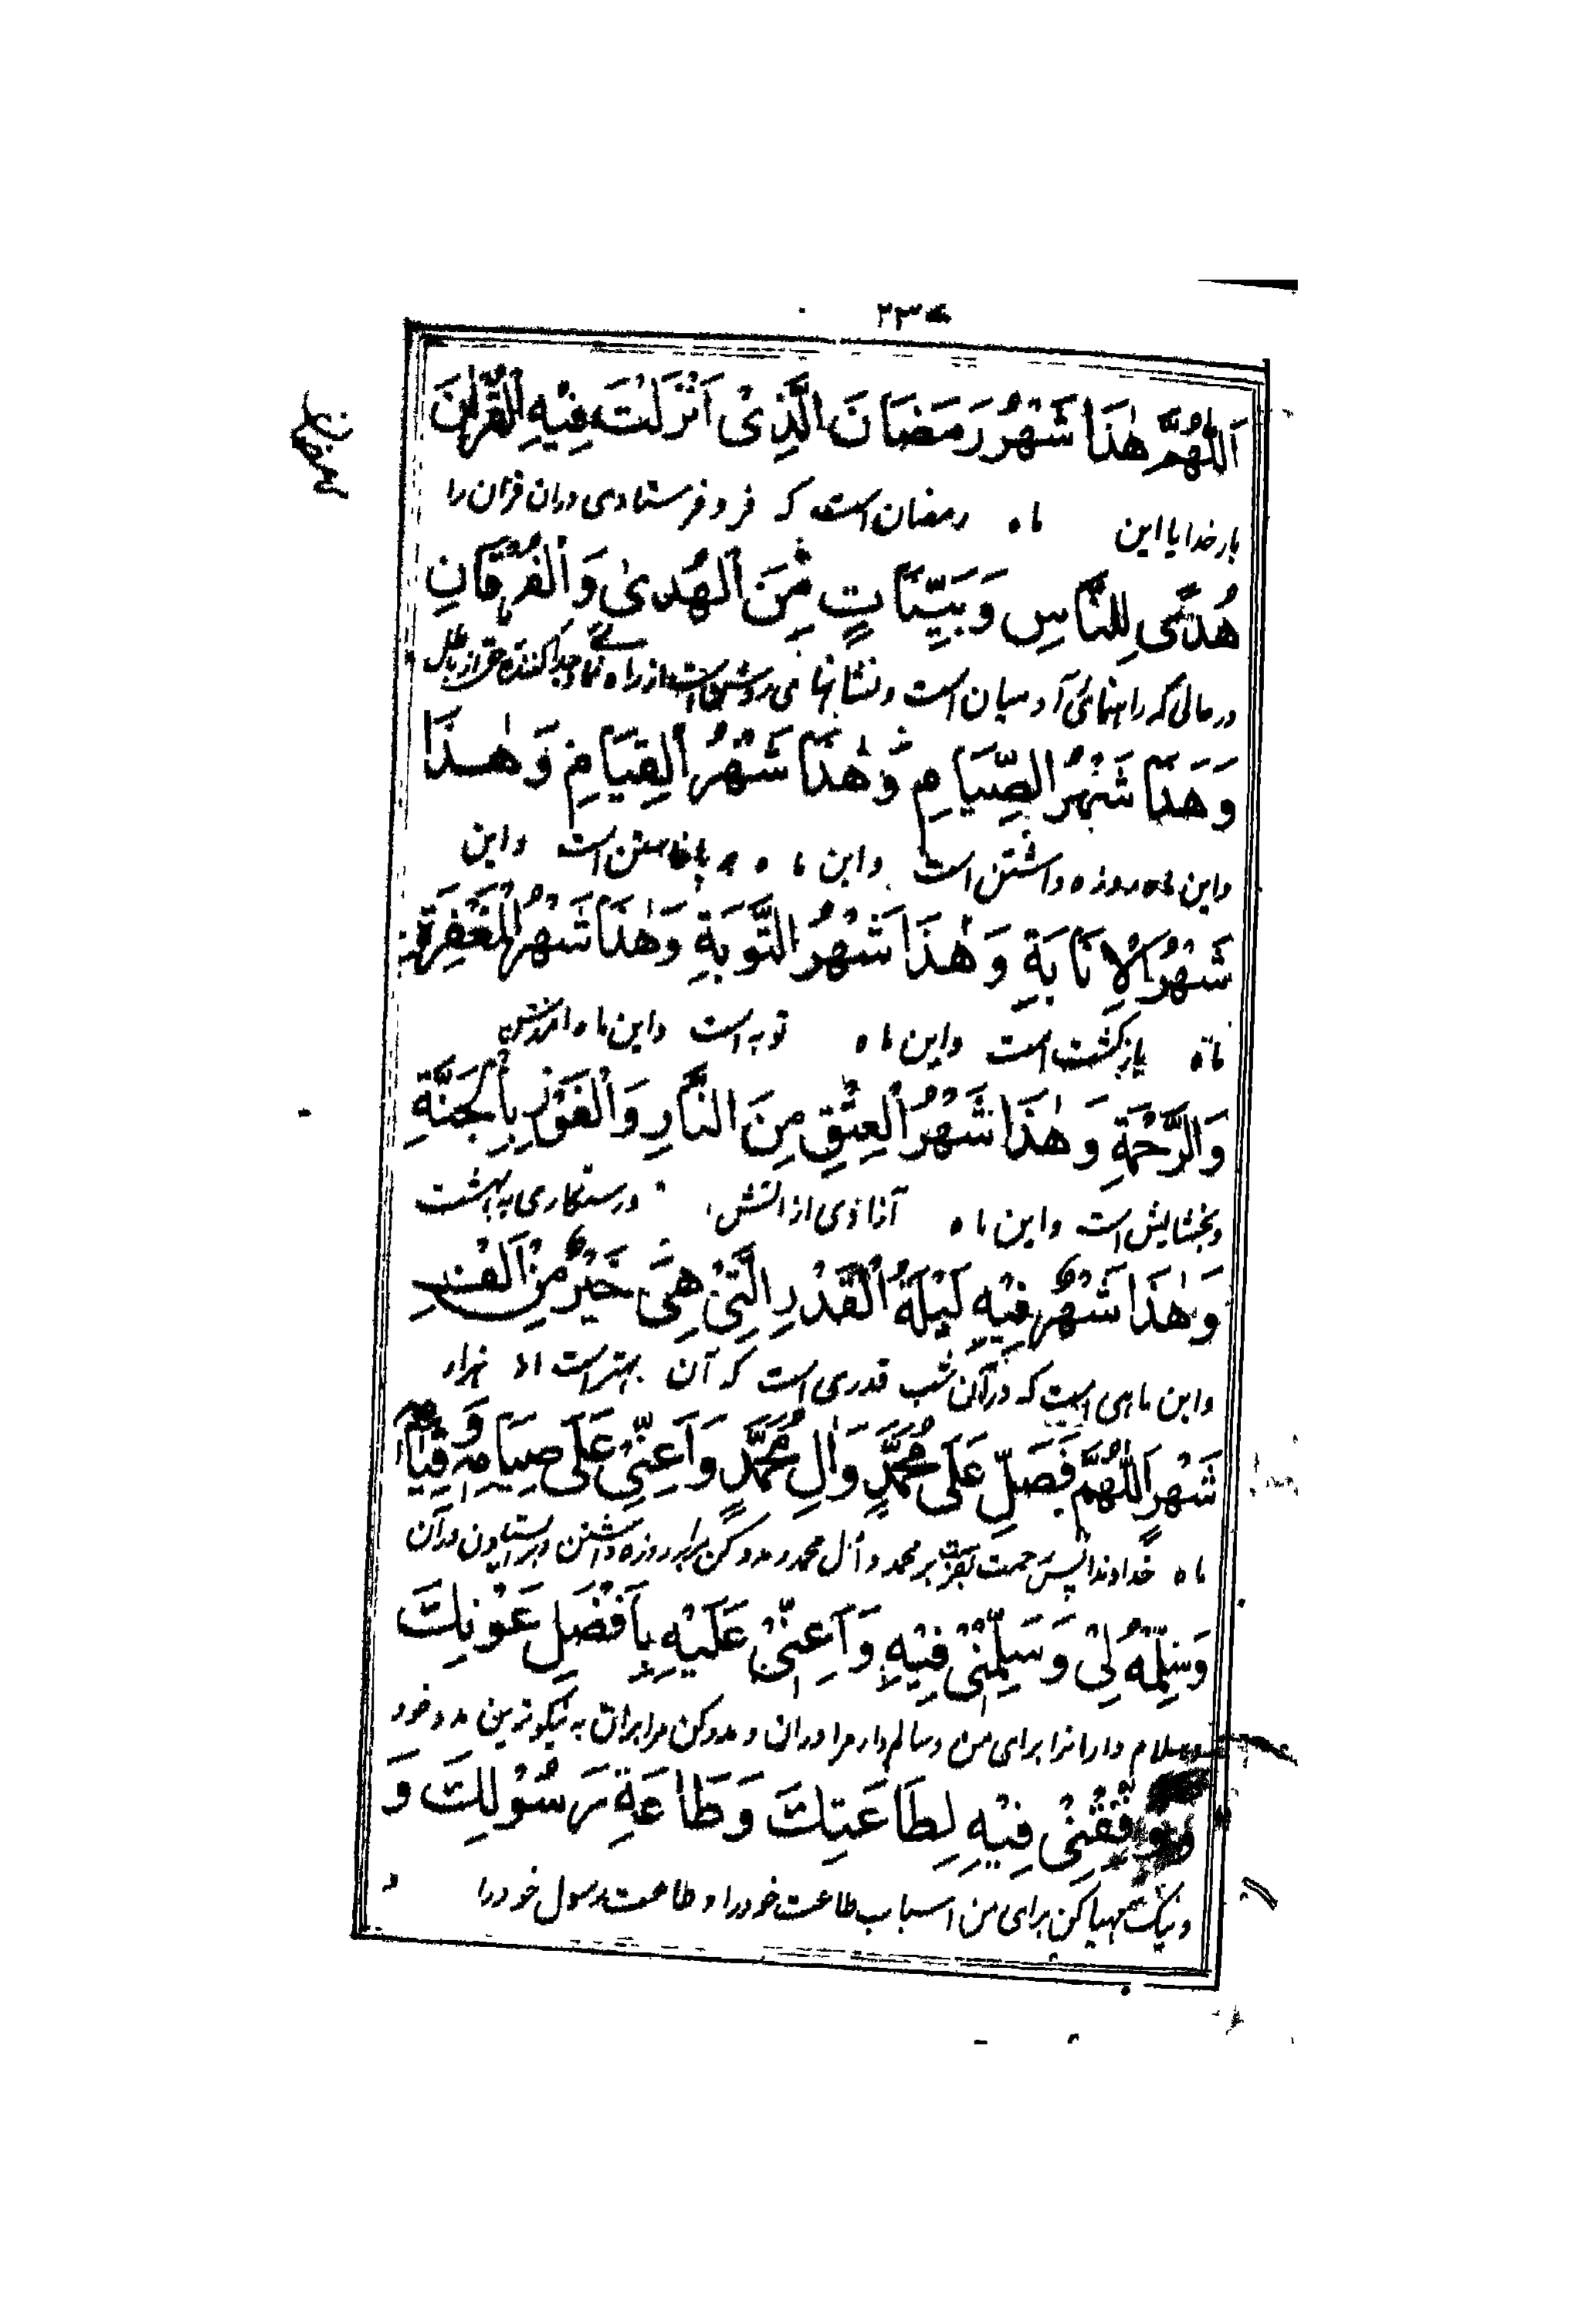 اَللّٰهُمَّ هٰذَا شَهْرُ رَمَضَانَ الَّذِیْ اَنْزَلْتَ فِیْهِ الْقُرْاٰنَ
بار خدایا این ماه رمضان است که فرو فرستادی دران قران را
هُدًی لِلنَّاسِ وَبَیِّنَاتٍ مِّنَ الْهُدیٰ وَالْفُرْقَانِ
در حالی که راهنمائی آدمیان است و نشانهای روشن است از راه نما و جدا کننده حق از باطل
وَهَذَا شَهْرُ الصِّیَامِ وَهٰذَا شَهْرُ الْقِیَامِ وَهٰذَا
و این ماه روزه داشتن است و این ماه بپا خاستن است و این
شَهْرُ الْاِنَابَةِ وَهٰذَا شَهْرُ التَّوْبَةِ وَهٰذَا شَهْرُ الْمَغْفِرَةِ
ماه بازگشت است و این ماه توبه است و این ماه امرزش
وَالرَّحْمَةِ وَهٰذَا شَهْرُ الْعِتْقِ مِنَ النَّارِ وَالْفَوْزِ بِالْجَنَّةِ
و بخشایش است و این ماه آزادی از اتش و رستکاری به بهشت
وَهٰذَا شَهْرٌ فِیْهِ لَیْلَةُ الْقَدْرِ الَّتِیْ هِیَ خَیْرٌ مِنْ اَلْفِ
و این ماهی است که در آن شب قدری است که آن بهتر است از هزار
شَهْرٍ اَللّٰهُمَّ فَصَلِّ عَلَی مُحَمَّدٍ وَاٰلِ مُحَمَّدٍ وَاَعِنِّیْ عَلَی صِیَامِهِ وَقِیَامِهِ
ماه خداوندا پس رحمت بفرست بر محمد و آل محمد و مدد کن مرا بر روزه داشتن و ایستادن در آن
وَسَلِّمْهُ لِیْ وَسَلِّمْنِیْ فِیْهِ وَاَعِنِّیْ عَلَیْهِ بِاَفْضَلِ عَوْنِكَ
و سلام دار انرا برای من و سالم دار مرا دران و مدد کن مرا بران به نیکوترین مدد خود
وَوَفِّقْنِیْ فِیْهِ لِطَاعَتِكَ وَطَاعَةِ رَسُوْلِكَ وَ
و نیک مهیا کن برای من اسباب طاعت خود را و طاعت رسول خود را و